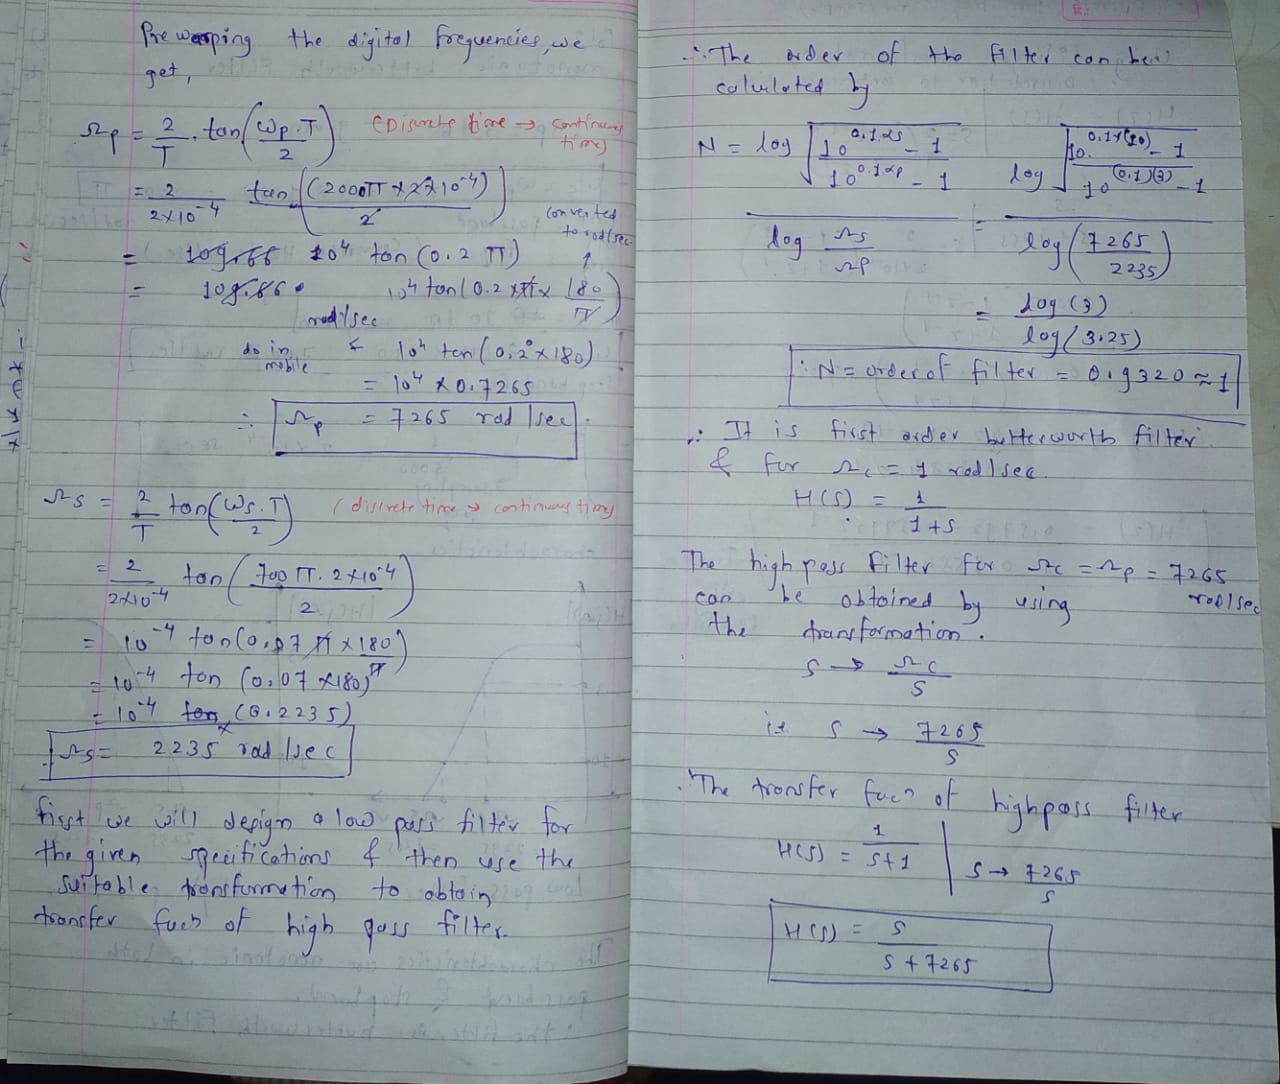 Prewarping the digital frequencies, we
get,
Ωp = 2/T . tan(ωp.T/2) (Discrete time → continuous time)
= 2/2×10⁻⁴ tan((2000π × 2×10⁻⁴)/2)
converted to rad/sec
= 10⁴ tan(0.2 π)
= 10⁴ tan(0.2 × π × 180/π)
rad/sec
do in mobile
10⁴ tan(0.2 × 180)
= 10⁴ × 0.7265
∴ Ωp = 7265 rad/sec.
Ωs = 2/T tan(ωs.T/2) (discrete time → continuous time)
= 2/2×10⁻⁴ tan(700π. 2×10⁻⁴/2)
= 10⁻⁴ tan(0.07 π × 180/π)
= 10⁻⁴ tan (0.07 × 180)
= 10⁻⁴ × (0.2235)
Ωs = 2235 rad/sec
first we will design a low pass filter for
the given specifications & then use the
suitable transformation to obtain
transfer fucn of high pass filter.
∴ The order of the filter can be
calculated by
N = log √(10^0.1αs - 1 / 10^0.1αp - 1) / log Ωs/Ωp = log √(10^0.1×(10) - 1 / 10^(0.1)(3) - 1) / log(7265/2235)
= log(3) / log(3.25)
∴ N = order of filter = 0.9320 ≈ 1
∴ It is first order butterworth filter
& for Ωc = 1 rad/sec
H(S) = 1/1+s
The high pass filter for Ωc = Ωp = 7265
rad/sec
can be obtained by using
the transformation.
S → Ωc/S
ie S → 7265/S
∴ The transfer fucn of highpass filter
H(S) = 1/S+1 | S → 7265/S
H(S) = S/S + 7265